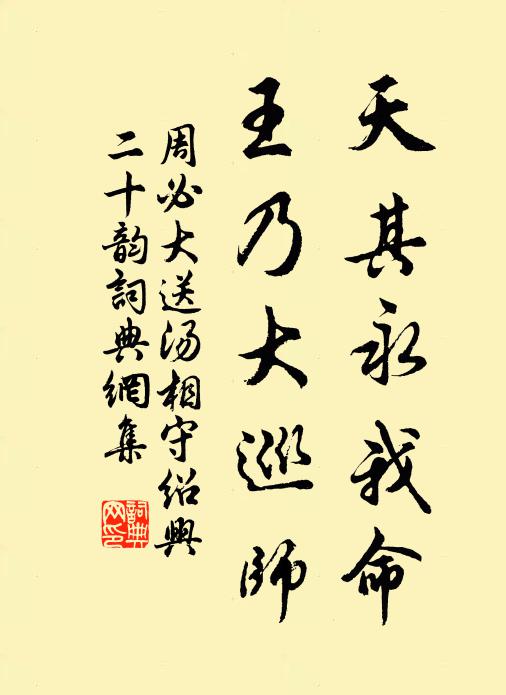 天其永我命
王乃大巡師
周必大送汤相守绍興
二十韵詞典網集
詞典网印